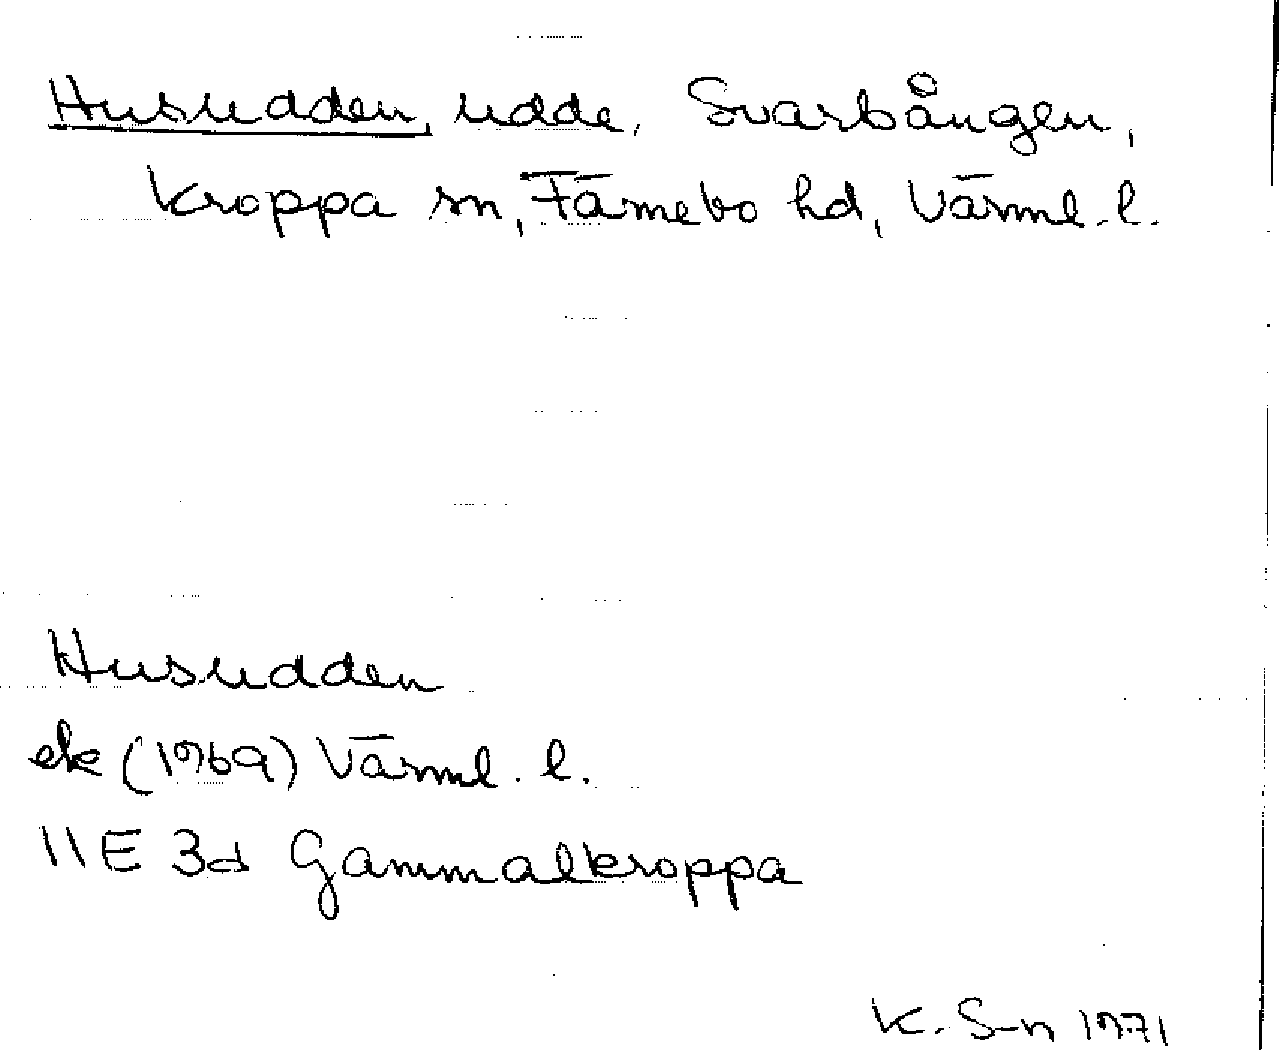 Husudden, udde, Svartsången,
Kroppa sn, Färnebo hd, Värml. l.
Husudden
ek (1969) Värml. l.
11E 3d Gammalkroppa
K. S-n 1971